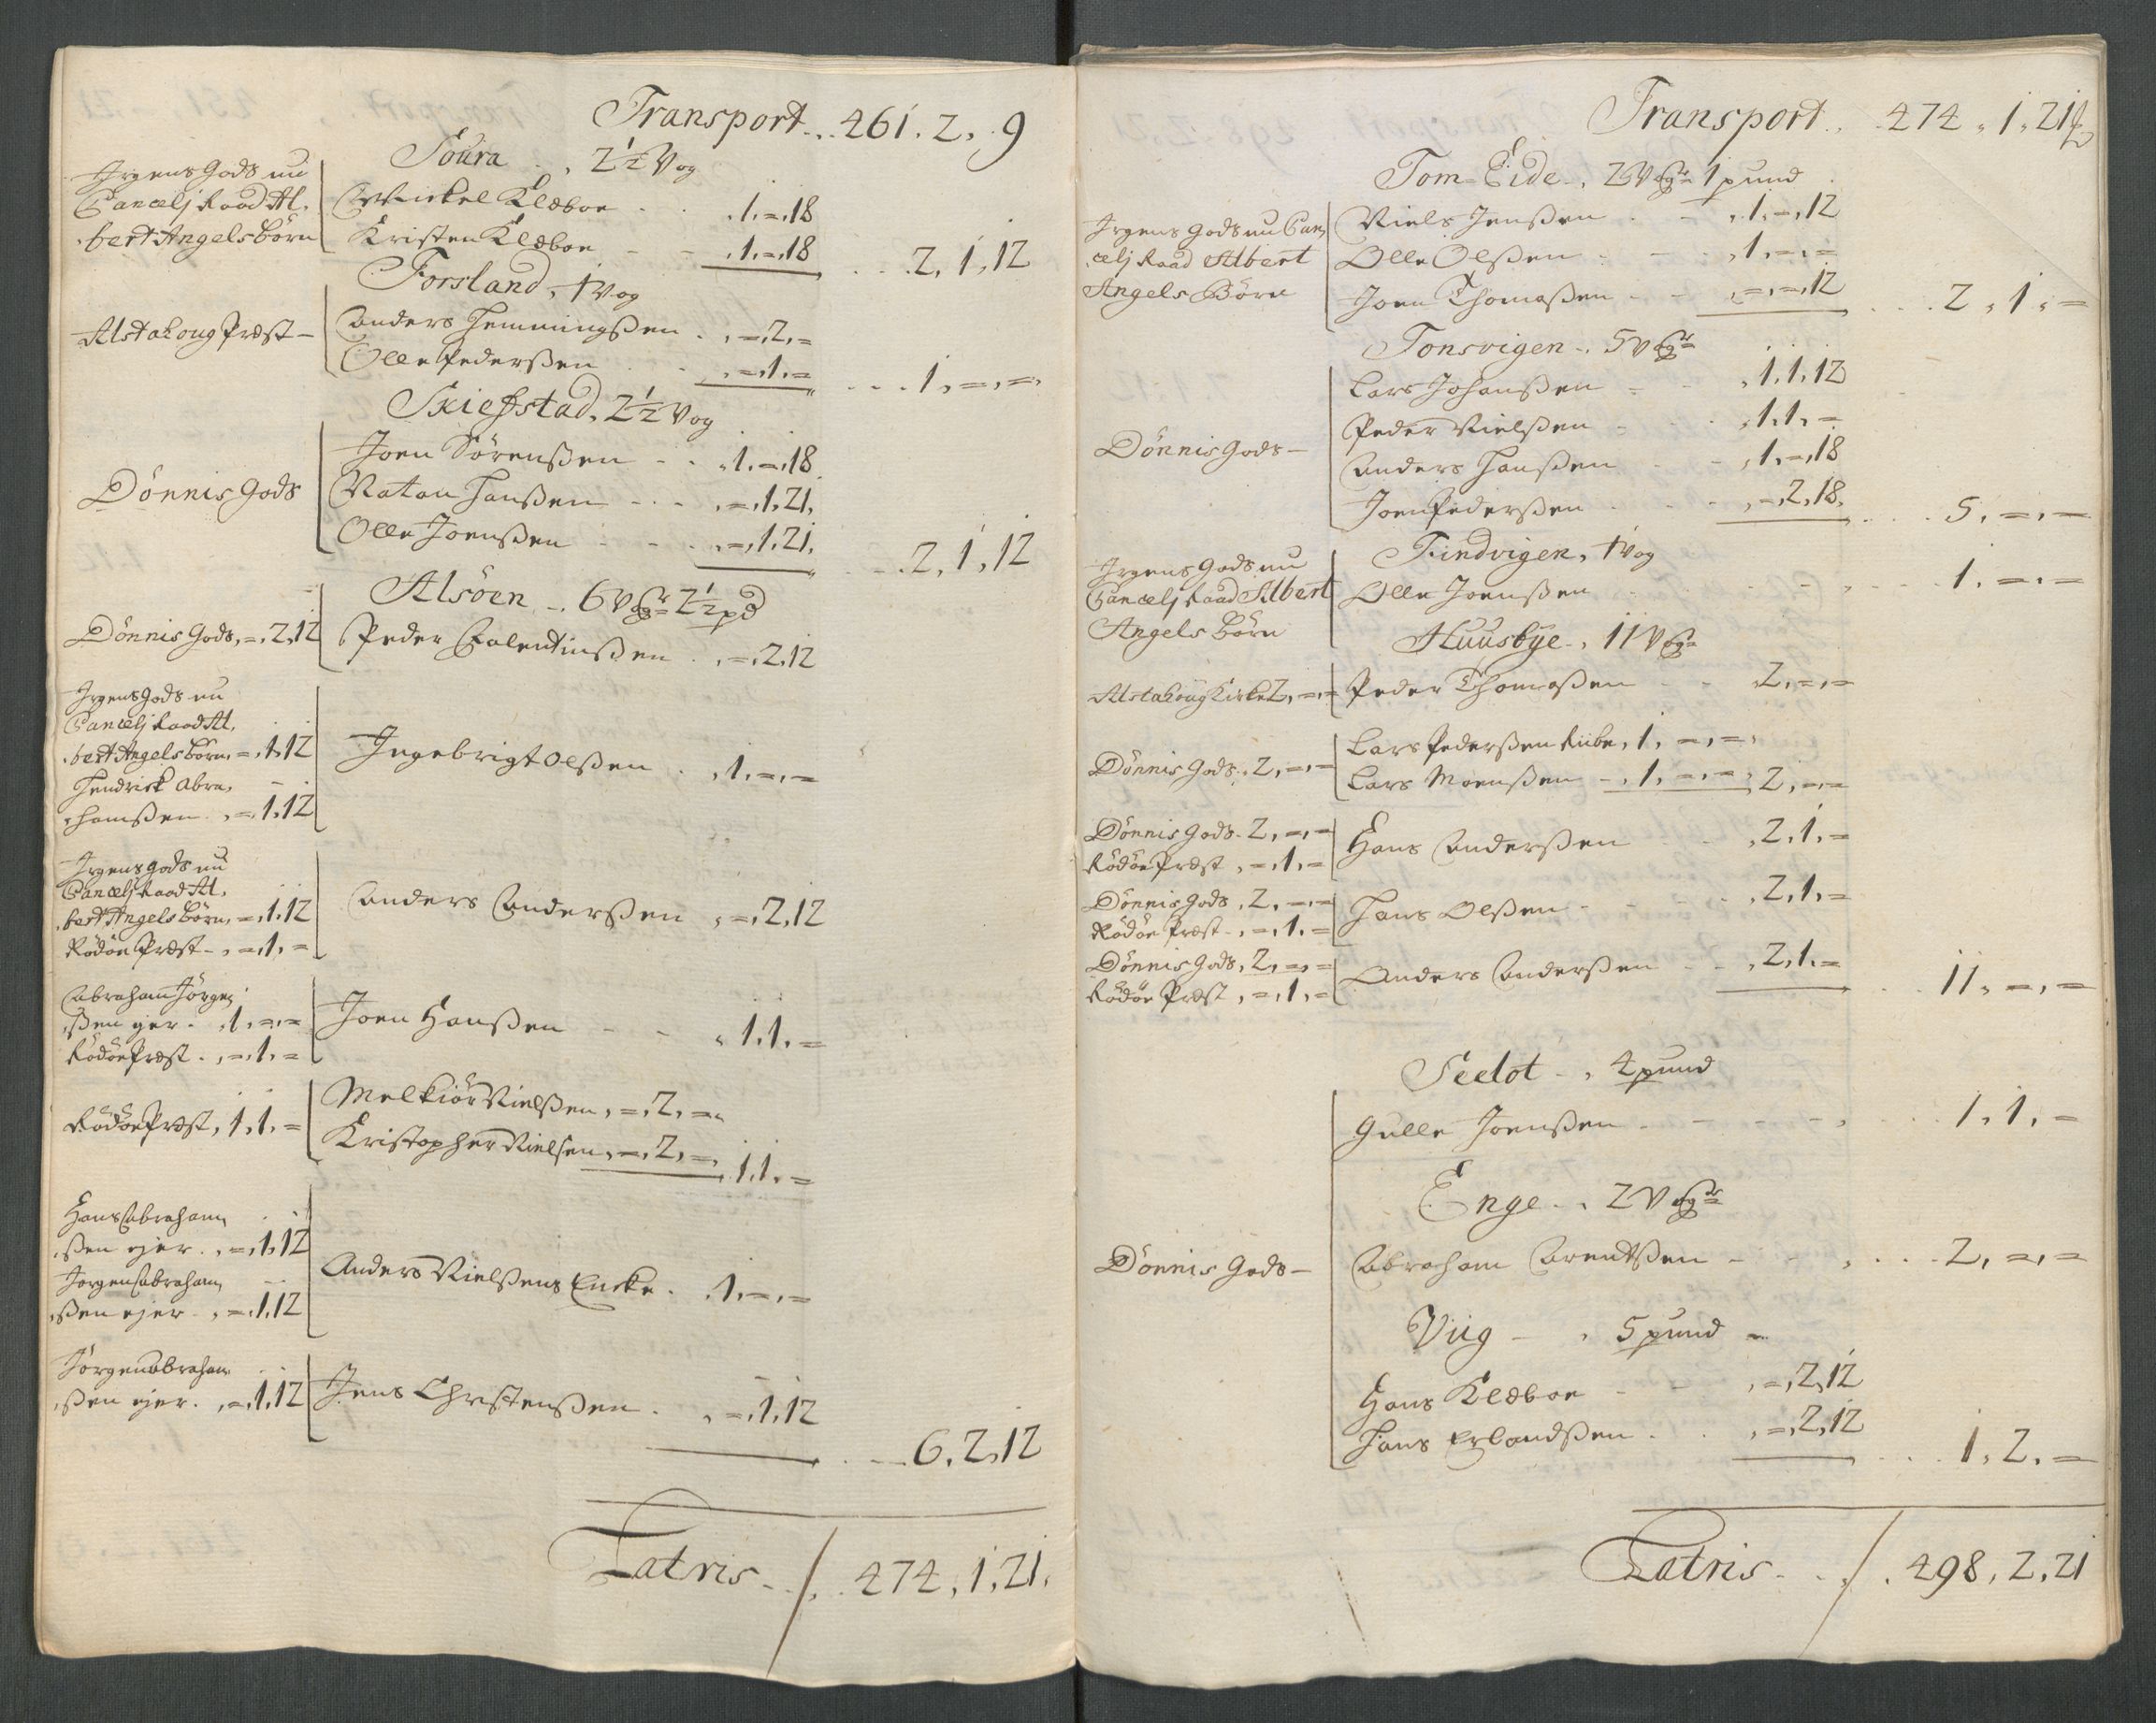 Transport . . 461. 2. 9
Soura . . 2½ Vog
Irgens Gods nu
Cancelj Raad Al,
bert Angels Börn
Mickel Klæboe . . 1. =. 18
Kristen Klæboe - - . 1. =. 18 . . . 2. 1. 12
Forsland, 1 Vog
Alstahoug Præst -
Anders Hemmingßen . , =. 2. =
Olle Pederßen . . , =. 1. = . . . 1, =, =,
Skiefstad, 2½ Vog
Dönnis Gods
Joen Sörenßen - . . 1. =. 18
Natan Hanßen - . - , =. 1. 21,
Olle Joenßen . - . , =, 1. 21. . - . 2, 1, 12
Alsöen - . 6 Vogr 2½ pd
Dönnis Gods, =. 2. 12
Peder Falentinßen . , =. 2. 12
Irgens Gods nu
Cancelj Raad Al,
bert Angels Börn, =. 1. 12
Hendrick Abra,
hamßen. , =. 1. 12
Ingebrigt Olßen . , 1. =. =
Irgens Gods nu
Cancelj Raad Al,
bert Angels Börn, =. 1. 12
Rödöe Præst - , =. 1. =
Anders Anderßen , =. 2. 12
Abraham Jörgen
ßen ejer . , 1. =. =
Rödöe Præst . , =. 1. =
Joen Hanßen - - , 1. 1. =
Rödöe Præst, 1. 1. =
Melkiör Nielßen, =. 2. =
Kristopher Nielsen, =. 2. =, 1. 1. =
Hans Abraham
ßen ejer . , =. 1. 12
Jörgen Abraham
ßen ejer . , =. 1. 12
Anders Nielßens Encke . , 1. =. =
Jörgen Abraham
ßen ejer . , =. 1. 12
Jens Christenßen . , =. 1. 12
. - 6. 2. 12
Latris - . /. . 474, 1, 21.
Transport . . 474, 1, 21
Tom Eide . , 2 Vogr 1 pund
Irgens Gods nu Can
celj Raad Albert
Angels Börn
Niels Jenßen . - , 1. =. 12
Olle Olßen . - . , 1. =. =
Joen Thomaßen - - , =. =. 12 . . . 2, 1, =
Tonsvigen - . 5 Vogr
Dönnis Gods -
Lars Johanßen - - , 1. 1. 12
Peder Nielßen - . , 1. 1. =
Anders Hanßen - - , 1. =. 18
Joen Pederßen . . , =. 2. 18. . . . 5. =. =
Findvigen, 1 Vog
Irgens Gods nu
Cancelj Raad Albert
Angels Börn
Olle Joenßen . - - , . . . 1. =. =
Huusbye - , 11 Vogr
Alstahoug Kirke 2, =. =
Peder Thomaßen - - , 2. =. =
Dönnis Gods . 2, =. =
Lars Pederßen Riibe, 1, =. =,
Lars Moenßen - , 1. =. =, 2. =. =
Dönnis Gods . 2, =. =
Rödöe Præst , =. 1. =
Hans Anderßen . . , 2. 1. =
Dönnis Gods , 2, =. =
Rödöe Præst - , =. 1. =
Hans Olßen - - - . , 2. 1. =
Dönnis Gods, 2, =. =
Rödöe Præst , =. 1. =
Anders Anderßen - - , 2. 1. = . . 11. =. =
Seelot - , 4 pund
Gulle Joenßen - - - - , . . . 1. 1. =
Enge . . 2 Vogr
Dönnis Gods -
Abraham Arentßen - - , . . . 2. =. =
Viig - , 5 pund
Hans Klæboe - - , =. 2. 12
Hans Erlandßen . . , =. 2. 12 . . . 1. 2. =
Latris - . . / . 498, 2, 21